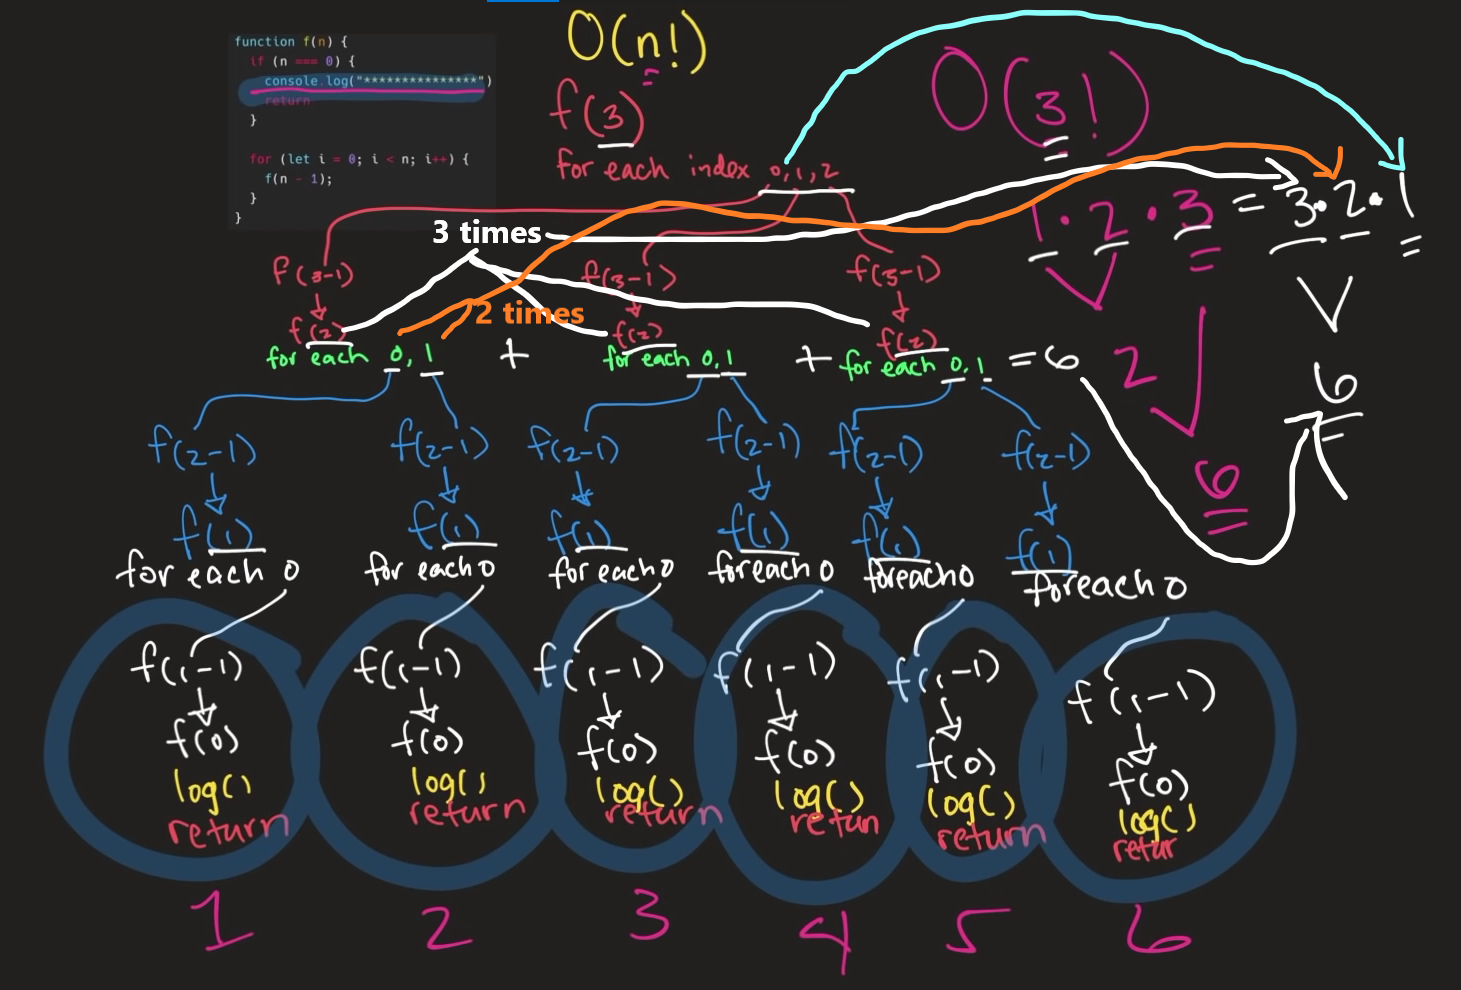 function f(n) {
if (n === 0) {
console.log("***************")
return
}
for (let i = 0; i < n; i++) {
f(n - 1);
}
}
O(n!)
f(3)
for each index 0,1,2
O(3!)
1·2·3 = 3·2·1
2
6
6
3 times
f(3-1) f(3-1) f(3-1)
2 times
f(2) f(2) f(2)
for each 0,1 + for each 0,1 + for each 0,1 = 6
f(2-1) f(2-1) f(2-1) f(2-1) f(2-1) f(2-1)
f(1) f(1) f(1) f(1) f(1) f(1)
for each 0 for each 0 for each 0 foreach 0 foreach 0 foreach 0
f(1-1) f(1-1) f(1-1) f(1-1) f(1-1) f(1-1)
f(0) f(0) f(0) f(0) f(0) f(0)
log() log() log() log() log() log()
return return return retun return retur
1 2 3 4 5 6